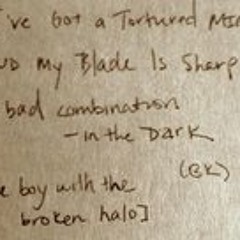 've Got a Tortured Min
ND My Blade Is Sharp
bad combination
- in the Dark
(BK)
e boy with the
broken halo]